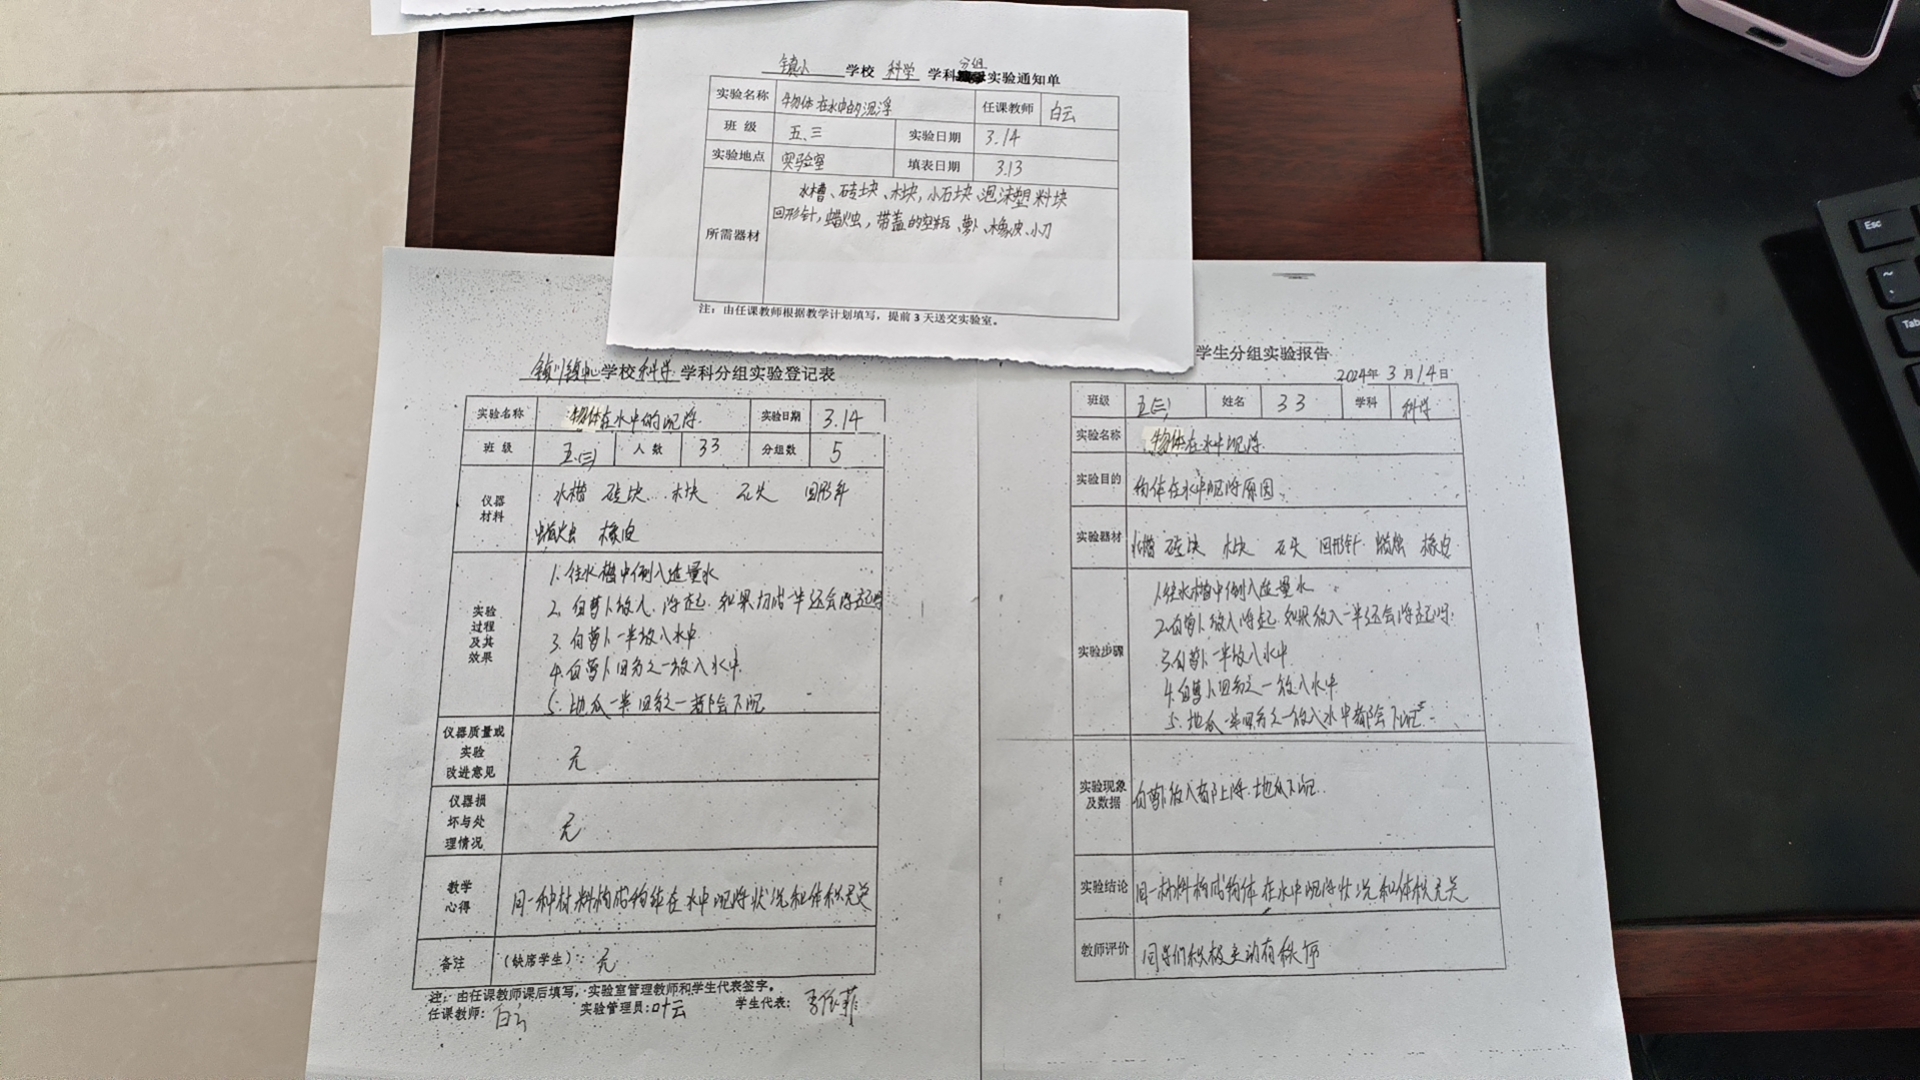 镇小 学校 科学 学科 分组 实验通知单
实验名称 物体在水中的沉浮 任课教师 白云
班 级 五.三 实验日期 3.14
实验地点 实验室 填表日期 3.13
所需器材 水槽、砖块、木块,小石块、泡沫塑料块
回形针,蜡烛,带盖的空瓶、萝卜、橡皮、小刀
注:由任课教师根据教学计划填写,提前3天送交实验室。
学校 科学 学科分组实验登记表
实验名称 物体在水中的沉浮 实验日期 3.14
班 级 五.(三) 人 数 33 分组数 5
仪器材料 水槽 砖块 木块 石头 回形针
蜡烛 橡皮
实验过程及其效果
1.往水槽中倒入适量水
2.白萝卜放入.浮起.如果切成一半还会浮起吗
3.白萝卜一半放入水中
4.白萝卜四分之一放入水中.
5.地瓜一半四分之一都会下沉
仪器质量或实验改进意见 无
仪器损坏与处理情况 无
教学心得 同一种材料构成物体在水中沉浮状况和体积无关
备注 (缺席学生): 无
注:由任课教师课后填写,实验室管理教师和学生代表签字。
任课教师: 白云 实验管理员:叶云 学生代表:
学生分组实验报告
2024年 3月14日
班级 五(三) 姓名 33 学科 科学
实验名称 物体在水中沉浮.
实验目的 物体在水中沉浮原因.
实验器材 水槽 砖块 木块 石头 回形针 蜡烛 橡皮.
实验步骤
1.往水槽中倒入适量水
2.白萝卜放入浮起.如果放入一半还会浮起吗.
3.白萝卜一半放入水中
4.白萝卜四分之一放入水中.
5.地瓜一半四分之一放入水中都会下沉.
实验现象及数据 白萝卜放入都上浮.地瓜下沉.
实验结论 同一材料构成物体在水中沉浮状况和体积无关
教师评价 同学们积极主动有秩序
Esc
~
Tab